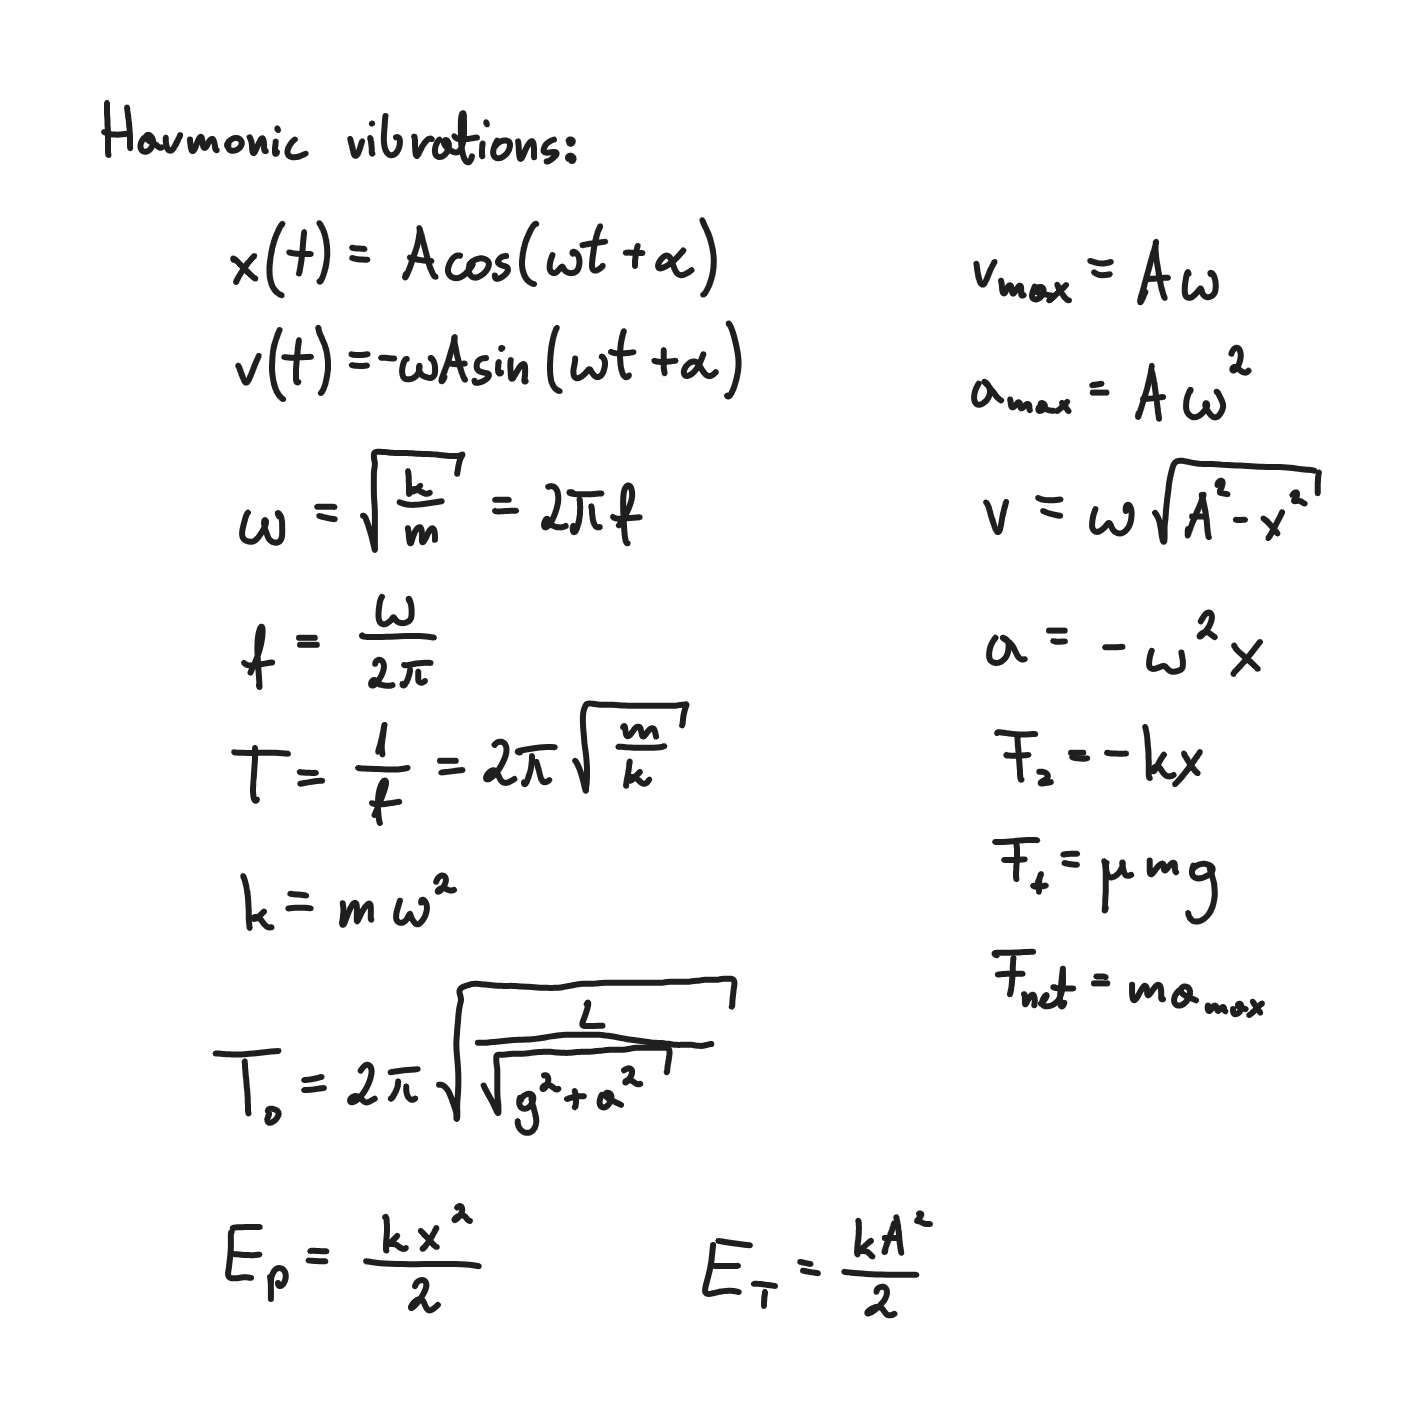 Harmonic vibrations:
x(t) = Acos(ωt + α)
v(t) = -ωAsin(ωt + α)
ω = √(k/m) = 2πf
f = ω/2π
T = 1/f = 2π√(m/k)
k = mω²
T₀ = 2π√(L/√(g²+a²))
E_p = kx²/2
E_T = kA²/2
v_max = Aω
a_max = Aω²
v = ω√(A²-x²)
a = -ω²x
F₂ = -kx
F_t = μmg
F_net = ma_max